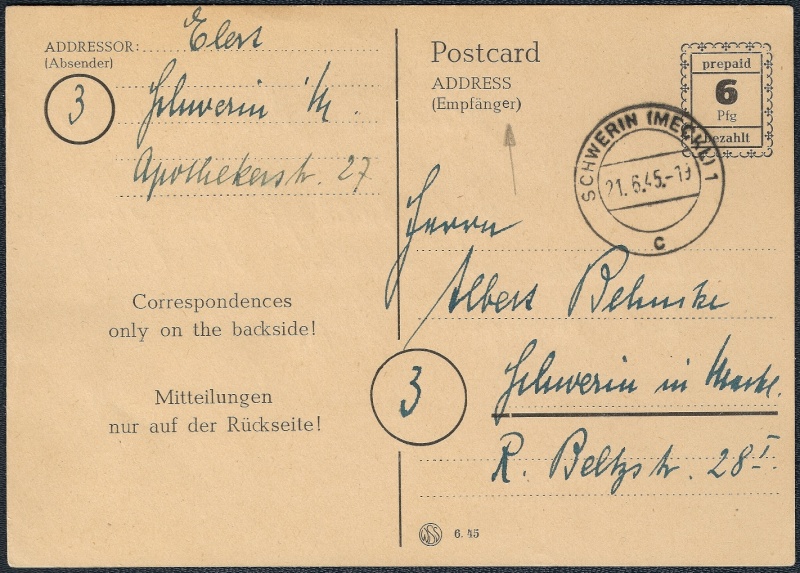 ADDRESSOR: Elert
(Absender)
3
Schwerin i/M.
Apothekerstr. 27
Correspondences
only on the backside!
Mitteilungen
nur auf der Rückseite!
Postcard
ADDRESS
(Empfänger)
prepaid
6
Pfg
bezahlt
SCHWERIN (MECKL) 1
21.6.45.-19
c
Herrn
Albert Behncke
3
Schwerin in Meckl.
R. Beltzstr. 28 I.
6.45